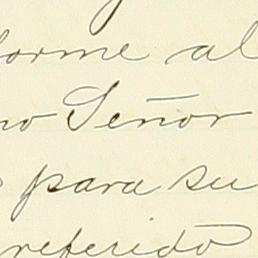 forme al
no Señor
para su
referido